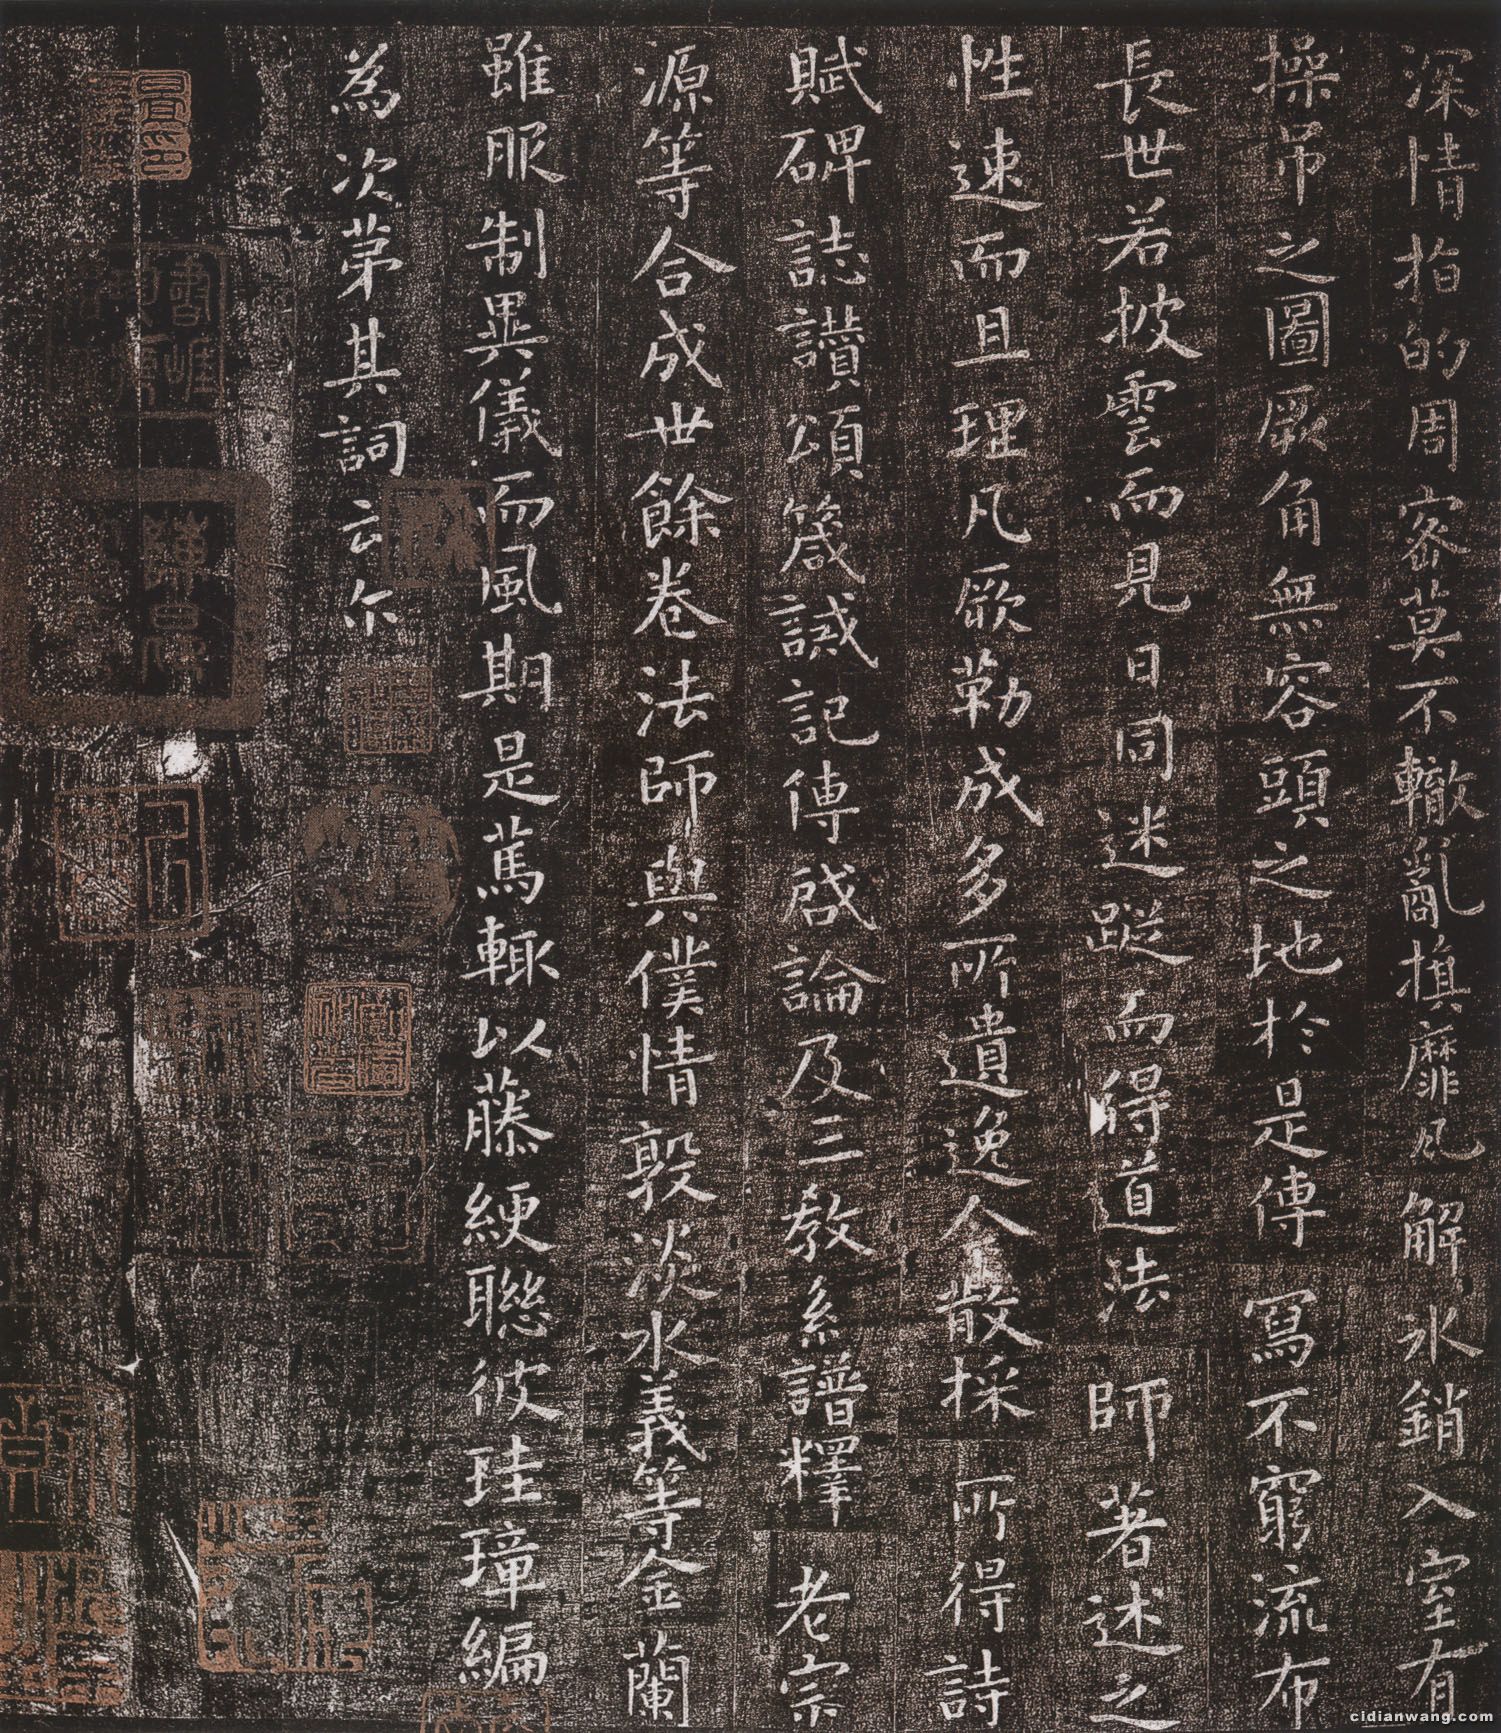 深情指的周密莫不轍亂旗靡瓦解冰銷入室有
操吊之圖厥角無容頭之地於是傳寫不窮流布
長世若披雲而見日同迷蹤而得道法師著述之
性速而且理凡厥勒成多所遺逸今散採所得詩
賦碑誌讚頌箴誡記傳啟論及三教系譜釋老宗
源等合成世餘卷法師與僕情敦淡水義等金蘭
雖服制異儀而風期是篤輒以藤綆聯彼珪璋編
為次第其詞云尔
cidianwang.com